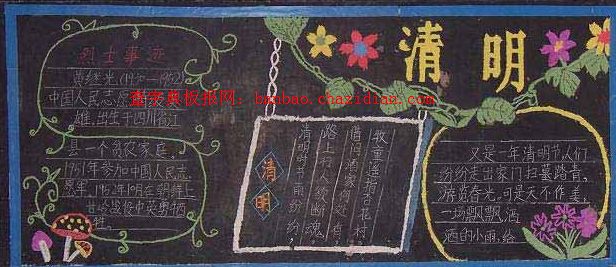 清明
烈士事迹
黄继光(1930—1952)
中国人民志愿
雄,出生于四川省江
县一个贫农家庭。
1951年参加中国人民志
愿军。1952年10月在朝鲜上
甘岭战役中英勇牺
牲。
查字典板报网:banbao.chazidian.com
清明
清明时节雨纷纷,
路上行人欲断魂。
借问酒家何处有,
牧童遥指杏花村。
又是一年清明节,人们
纷纷走出家门扫墓踏青,
游览春光。可是天不作美,
一场飘飘洒
洒的小雨,给